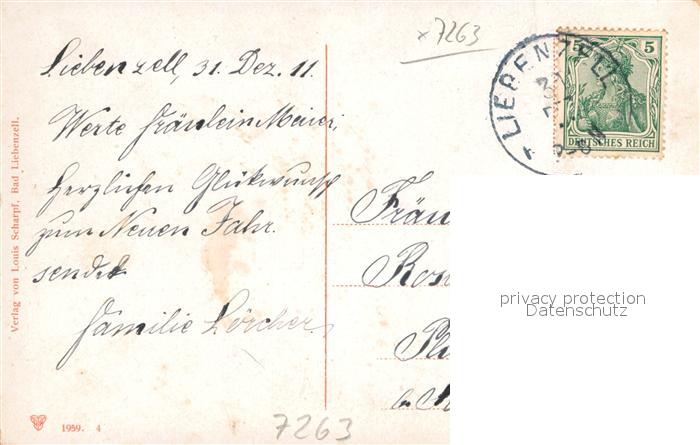 x7263
Liebenzell, 31. Dez. 11.
Werte Fräulein Meier,
Herzlichen Glückwunsch
zum Neuen Jahr.
sendet
Familie Lörcher.
Verlag von Louis Scharpf, Bad Liebenzell.
1959. 4
7263
LIEBENZELL
5 5
DEUTSCHES REICH
Fräu
Ros
privacy protection
Datenschutz